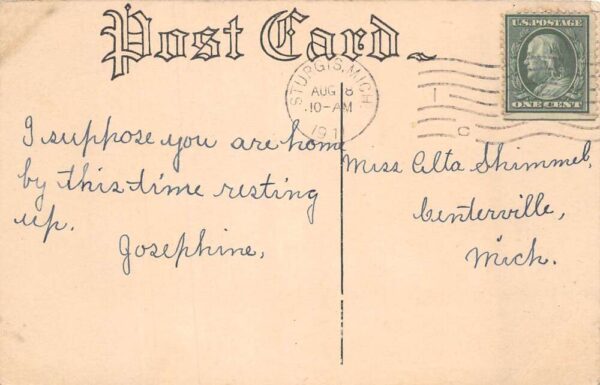 Post Card
U.S. POSTAGE
ONE CENT
STURGIS, MICH.
AUG 8
10-AM
191
C
I suppose you are home
by this time resting
up.
Josephine.
Miss Alta Shimmel,
Centerville,
Mich.